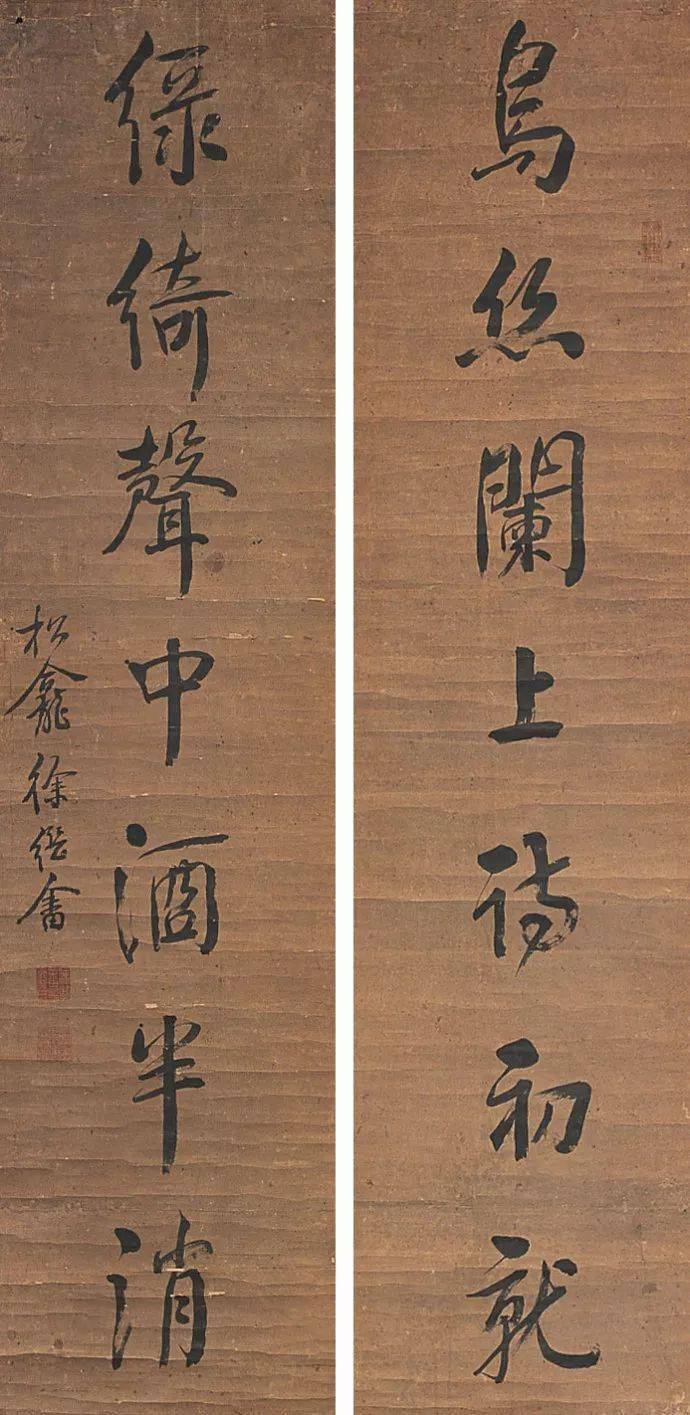 烏絲闌上詩初就
綠綺聲中酒半消
松龕徐繼畬